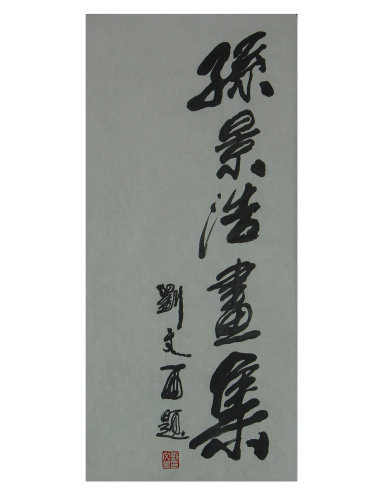 孫景浩畫集
劉文西題